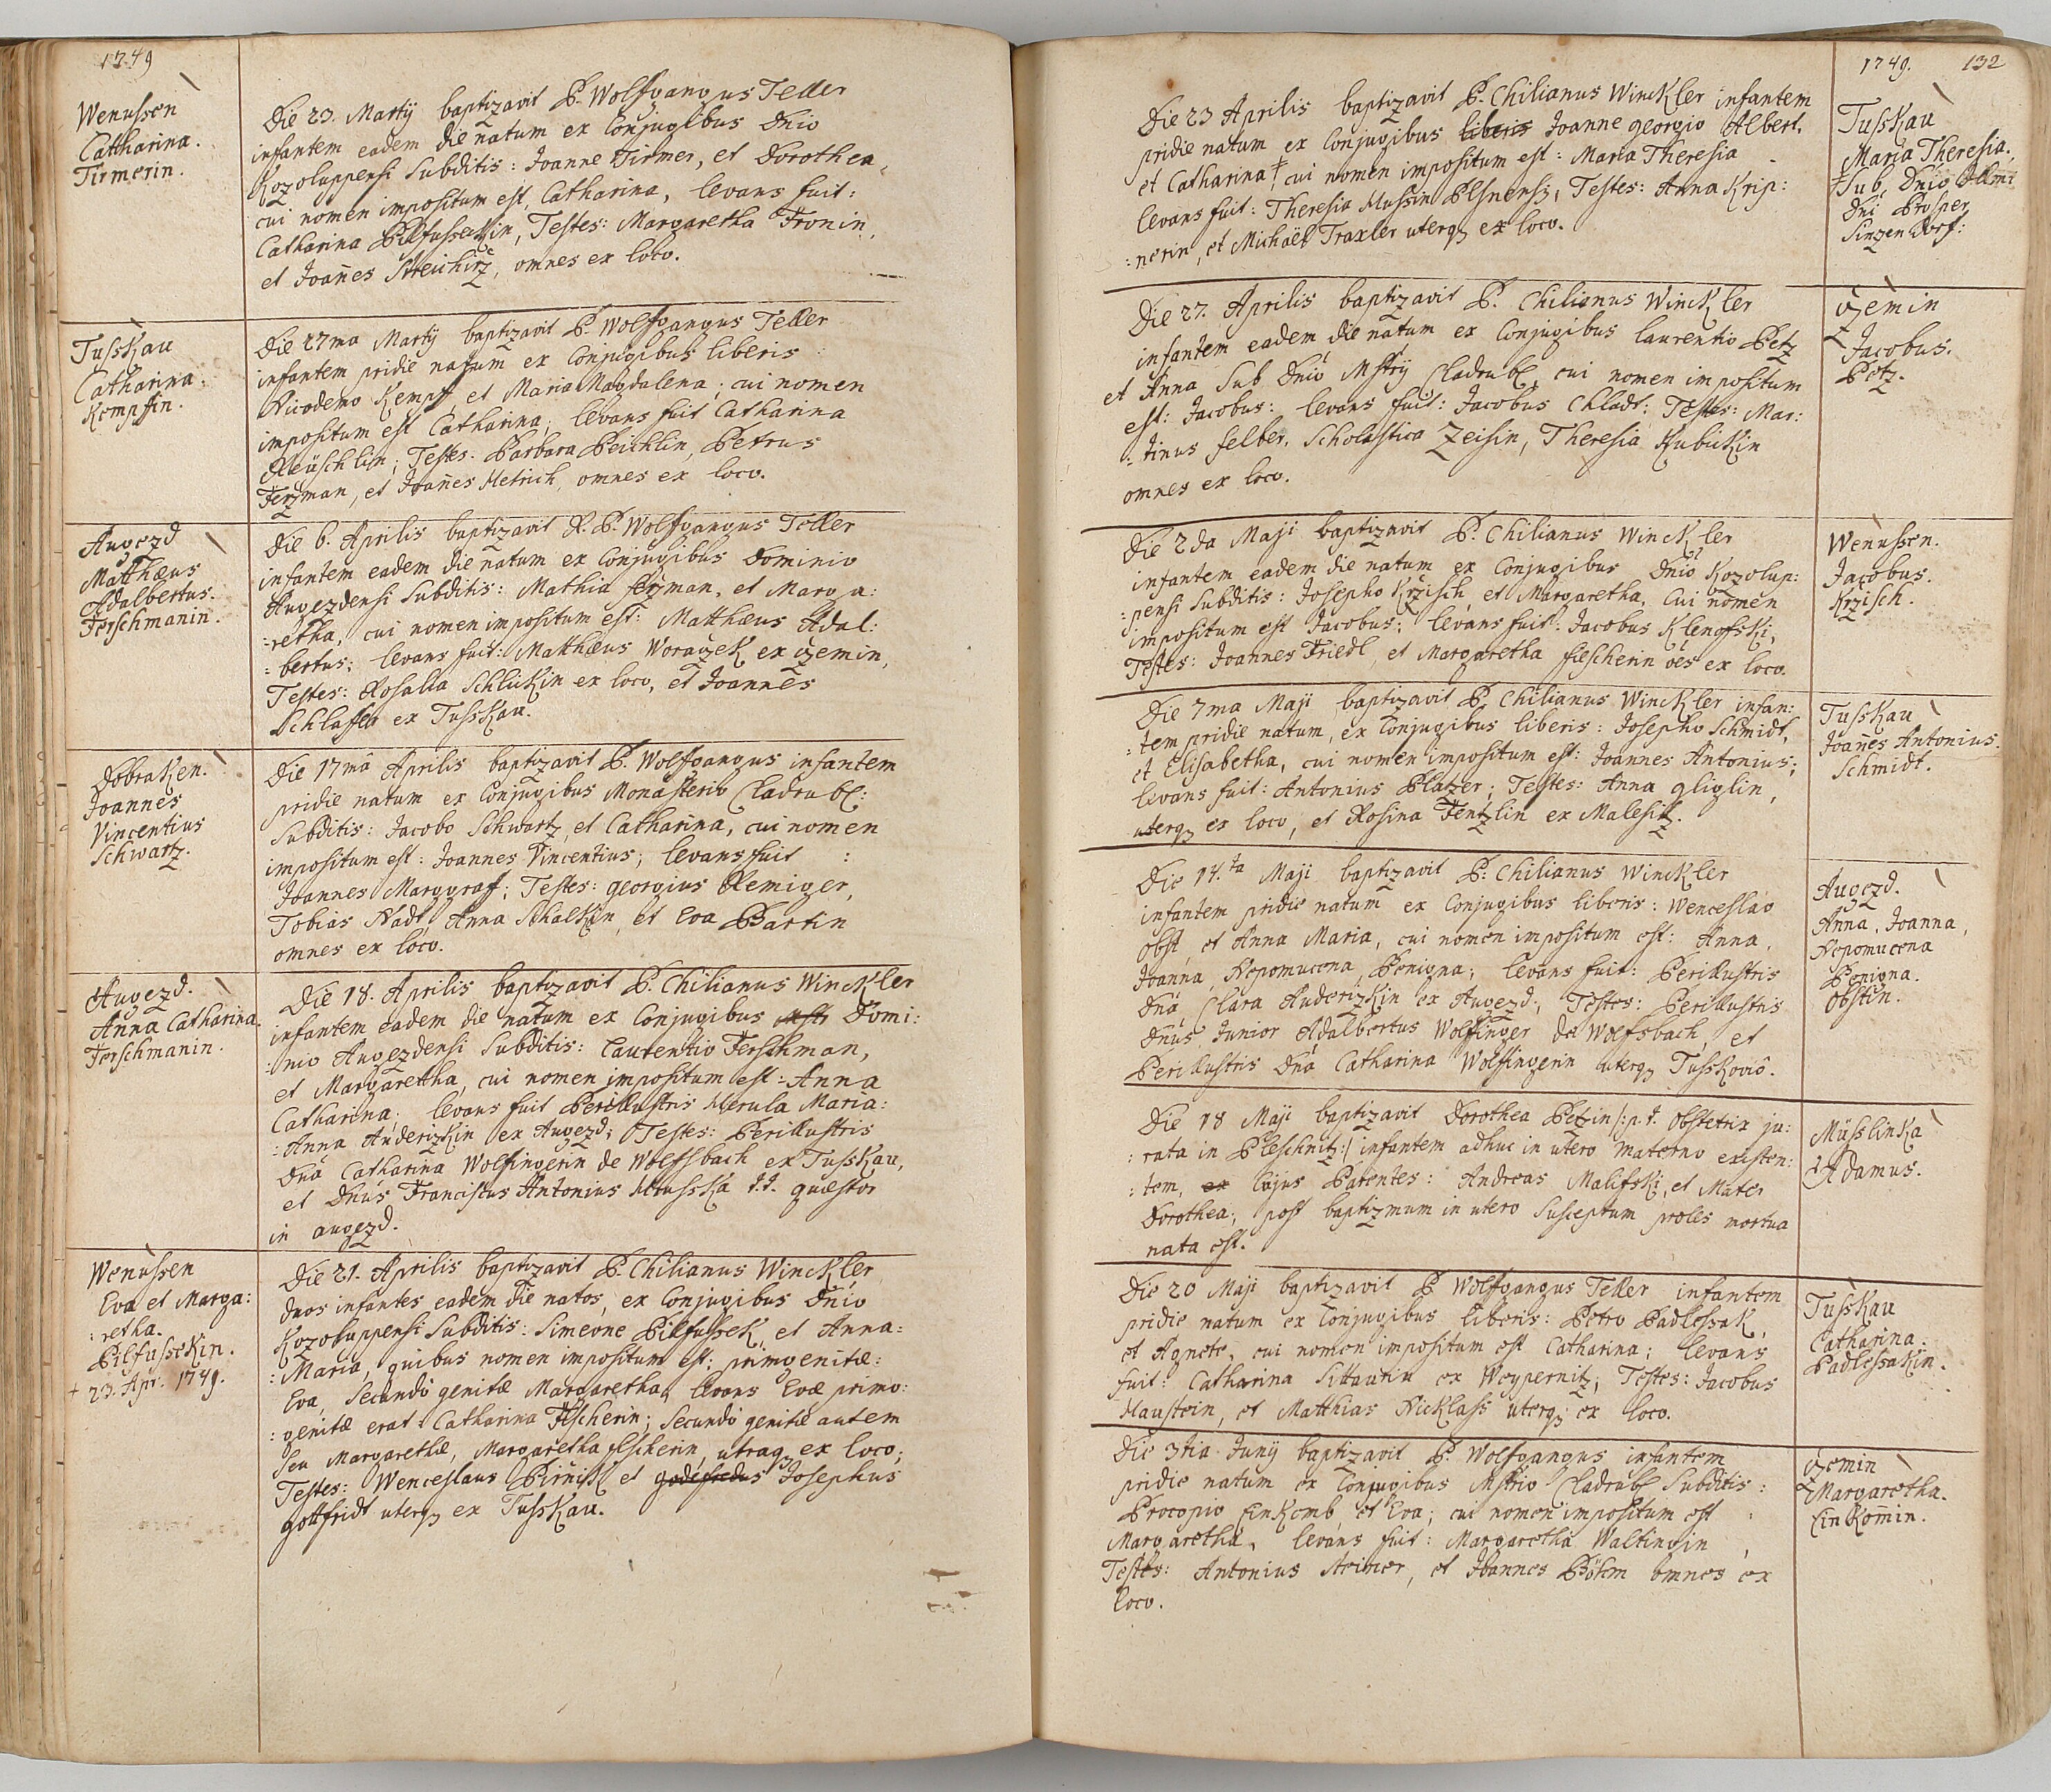 1749
Wenussen
Catharina.
Tirmerin.
Die 23. Martij baptizavit P. Wolfgangus Teller
infantem eadem die natum ex Conjugibus Dnio
Kozoluppensi Subditis: Joanne Tirmer, et Dorothea,
cui nomen impositum est, Catharina, levans fuit:
Catharina Pilfussekin, Testes: Margaretha Fronin,
et Joan̄es Streichirz, omnes ex loco.
Tusskau
Catharina.
Kempfin.
Die 27ma Martij baptizavit P. Wolfgangus Teller
infantem pridie natum ex Conjugibus liberis
Nicodemo Kempf et Maria Magdalena; cui nomen
impositum est Catharina; levans fuit Catharina
Reüschlin; Testes: Barbara Peichlin, Petrus
Ferzman, et Joan̄es Hetrich, omnes ex loco.
Augezd
Matthæus
Adalbertus.
Ferschmanin.
Die 6. Aprilis baptizavit R. P. Wolfgangus Teller
infantem eadem die natum ex Conjugibus Dominio
Augezdensi Subditis: Mathia ferzman, et Marga:
:retha, cui nomen impositum est: Matthæus Adal:
:bertus; levans fuit: Matthæus Woraczek ex Czemin,
Testes: Rosalia Schlickin ex loco, et Joannes
Schlaffer ex Tusskau.
Dobraken.
Joannes
Vincentius
Schwartz.
Die 17ma Aprilis baptizavit P. Wolfgangus infantem
pridie natum ex Conjugibus Monasterio Cladrub:
Subditis: Jacobo Schwartz, et Catharina, cui nomen
impositum est: Joannes Vincentius; levans fuit :
Joannes Marggraf; Testes: georgius Remiger,
Tobias Nadt, Anna Schalkin, et Eva Bartin
omnes ex loco.
Augezd.
Anna Catharina.
Ferschmanin.
Die 18. Aprilis baptizavit P. Chilianus Winckler
infantem eadem die natum ex Conjugibus Mstr Domi:
:nio Augezdensi Subditis: Laurentio Ferschman,
et Margaretha, cui nomen impositum est: Anna
Catharina; levans fuit Perillustris Herula Maria:
:Anna Auderizkin ex Augezd; Testes: Perillustris
Dna Catharina Wolfingerin de Wolfsbach ex Tusskau,
et Dnus Franciscus Antonius Hrusska t.t. quæstor
in augezd.
Wenussen
Eva et Marga:
:retha.
Pilfussekin.
+ 23. Apr. 1749.
Die 21. Aprilis baptizavit P. Chilianus Winckler
duos infantes eadem die natos, ex Conjugibus Dnio
Kozoluppensi Subditis: Simeone Pilfussek, et Anna:
:Maria, quibus nomen impositum est: primogenitæ:
Eva, Secundo genitæ Margaretha, levans Evæ primo:
:genitæ erat Catharina Fischerin; Secundo genitæ autem
Seu Margarethæ, Margaretha fischerin, utraq ex loco;
Testes: Wenceslaus Pirnik et godefredus Josephus
gottfridt uterq ex Tusskau.
1749. 132
Die 23 Aprilis baptizavit P. Chilianus Winckler infantem
pridie natum ex Conjugibus liberis Joanne georgio Albert,
et Catharina†, cui nomen impositum est: Maria Theresia
levans fuit: Theresia Hussin Plsnensis, Testes: Anna Krip:
:nerin, et Michaël Traxler uterq ex loco.
Tusskau
Maria Theresia.
†Sub Dnio
Dni Prosper
Sinzendorf:
Die 27. Aprilis baptizavit P. Chilianus Winckler
infantem eadem die natum ex Conjugibus laurentio Petz
et Anna Sub Dnio Mstrij Cladrub, cui nomen impositum
est: Jacobus: levans fuit: Jacobus Chladt: Testes: Mar:
:tinus felber, Scholastica Zeisin, Theresia Kubickin
omnes ex loco.
Czemin
Jacobus.
Petz.
Die 2da Maji baptizavit P. Chilianus Winckler
infantem eadem die natum ex Conjugibus Dnio Kozolup:
:pensi Subditis: Josepho Krzisch, et Margaretha, Cui nomen
impositum est Jacobus; levans fuit: Jacobus Klenofski,
Testes: Joannes Friedl, et Margaretha fischerin oēs ex loco.
Wenussen.
Jacobus.
Krzisch.
Die 7ma Maji baptizavit P. Chilianus Winckler infan:
:tem pridie natum, ex Conjugibus liberis: Josepho Schmidt,
et Elisabetha, cui nomen impositum est: Joannes Antonius;
levans fuit: Antonius Platzer; Testes: Anna gliglin,
uterq ex loco, et Rosina Fentzlin ex Malesitz.
Tusskau
Joan̄es Antonius.
Schmidt.
Die 14.ta Maji baptizavit P: Chilianus Winckler
infantem pridie natum ex Conjugibus liberis: Wenceslao
Obst, et Anna Maria, cui nomen impositum est: Anna,
Joanna, Nepomucena, Benigna; levans fuit: Perillustris
Dna, Clara Auderizkin ex Augezd; Testes: Perillustris
Dnus Junior Adalbertus Wolfinger de Wolfsbach, et
Perillustris Dna Catharina Wolfingerin uterq Tusskovio.
Augezd.
Anna, Joanna,
Nepomucena
Benigna.
Obstin.
Die 18 Maji baptizavit Dorothea Petzin /:p.t. Obstetrix ju:
:rata in Pleschnitz:/ infantem adhuc in utero materno existen:
:tem, ex Cujus Parentes: Andreas Malifski, et Mater
Dorothea; post baptizmum in utero Susceptum proles mortua
nata est.
Müsslinka
† Adamus.
Die 20 Maji baptizavit P. Wolfgangus Teller infantem
pridie natum ex Conjugibus liberis: Petro Padlessak,
et Agnete, cui nomen impositum est Catharina; levans
fuit: Catharina Sittautin ex Weypernitz; Testes: Jacobus
Haustein, et Matthias Nicklass uterq ex loco.
Tusskau
Catharina.
Padlessakin.
Die 3tia Junij baptizavit P. Wolfgangus infantem
pridie natum ex Conjugibus Mstrio Cladrub Subditis:
Procopio Einkomb, et Eva; cui nomen impositum est
Margaretha, levans fuit: Margaretha Waltingin,
Testes: Antonius Steiner, et Joannes Böhm omnes ex
loco.
Czemin
Margaretha.
Einkom̄in.